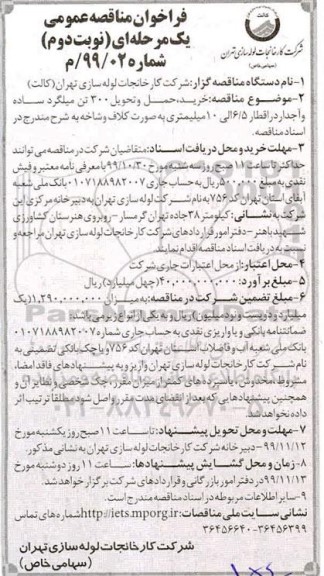 فراخوان مناقصه عمومی
یک مرحله‌ای (نوبت دوم)
شماره ۹۹/۰۲/م
کالت
شرکت کارخانجات لوله سازی تهران
(سهامی خاص)
۱-نام دستگاه مناقصه گزار: شرکت کارخانجات لوله سازی تهران (کالت)
۲-موضوع مناقصه: خرید، حمل و تحویل ۳۰۰ تن میلگرد ساده
و آجدار در اقطار ۶/۵ الی ۱۰ میلیمتری به صورت کلاف و شاخه به شرح مندرج در
اسناد مناقصه.
۳-مهلت خرید و محل دریافت اسناد: متقاضیان شرکت در مناقصه می توانند
حداکثر تا ساعت ۱۱ صبح روز سه شنبه مورخ ۹۹/۱۰/۳۰ با معرفی نامه معتبر و فیش
نقدی به مبلغ ۵۰۰/۰۰۰ ریال به حساب جاری ۰۱۰۷۱۸۸۹۸۲۰۰۷ بانک ملی شعبه
آبفای استان تهران کد ۷۵۶ به نام شرکت لوله سازی تهران به دبیرخانه مرکزی این
شرکت به نشانی: کیلومتر ۳۸ جاده تهران گرمسار - روبروی هنرستان کشاورزی
شهید باهنر - دفتر امور قراردادهای شرکت کارخانجات لوله سازی تهران مراجعه و
نسبت به دریافت اسناد مناقصه اقدام نمایند.
۴-محل اعتبار: از محل اعتبارات جاری شرکت
۵-مبلغ برآورد: ۴۰,۰۰۰,۰۰۰,۰۰۰ (چهل میلیارد) ریال
۶-مبلغ تضمین شرکت در مناقصه: به میزان ۱,۲۹۰,۰۰۰,۰۰۰ (یک
میلیارد و دویست و نود میلیون) ریال و به یکی از انواع زیر می باشد:
ضمانتنامه بانکی و یا واریزی نقدی به حساب جاری شماره ۰۱۰۷۱۱۸۸۹۸۳۰۰۷
بانک ملی شعبه آب و فاضلاب استان تهران کد ۷۵۶ و یا چک بانکی تضمینی به
نام شرکت کارخانجات لوله سازی تهران واریز و به پیشنهادهای فاقد امضاء،
مشروط، مخدوش، یا سپرده های کمتر از میزان مقرر، چک شخصی و نظایر آن و
همچنین پیشنهادهایی که بعد از انقضای مدت مقرر واصل شود مطلقاً ترتیب اثر
داده نخواهد شد.
۷-مهلت و محل تحویل پیشنهاد: تا ساعت ۱۱ صبح روز یکشنبه مورخ
۹۹/۱۱/۱۲ - دبیرخانه شرکت کارخانجات لوله سازی تهران به نشانی مذکور.
۸-زمان و محل گشایش پیشنهادها: ساعت ۱۱ روز دوشنبه مورخ
۹۹/۱۱/۱۳ در دفتر امور بازرگانی و قراردادهای شرکت برگزار خواهد شد.
۹-سایر اطلاعات مربوطه در اسناد مناقصه مندرج است.
نشانی سایت ملی مناقصات: http://iets.mporg.ir شماره های تماس
۳۶۴۵۶۳۹۹-۳۶۴۵۶۶۴۰
شرکت کارخانجات لوله سازی تهران
(سهامی خاص)